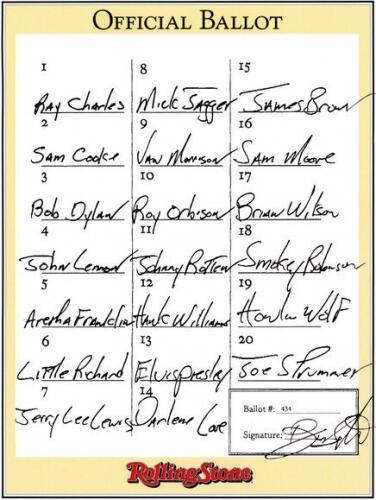 OFFICIAL BALLOT
1
Ray Charles
2
Sam Cooke
3
Bob Dylan
4
John Lennon
5
Aretha Franklin
6
Little Richard
7
Jerry Lee Lewis
8
Mick Jagger
9
Van Morrison
10
Roy Orbison
11
Johnny Rotten
12
Hank Williams
13
Elvis Presley
14
Darlene Love
15
James Brown
16
Sam Moore
17
Brian Wilson
18
Smokey Robinson
19
Howlin Wolf
20
Joe Strummer
Ballot #: 434
Signature:
RollingStone